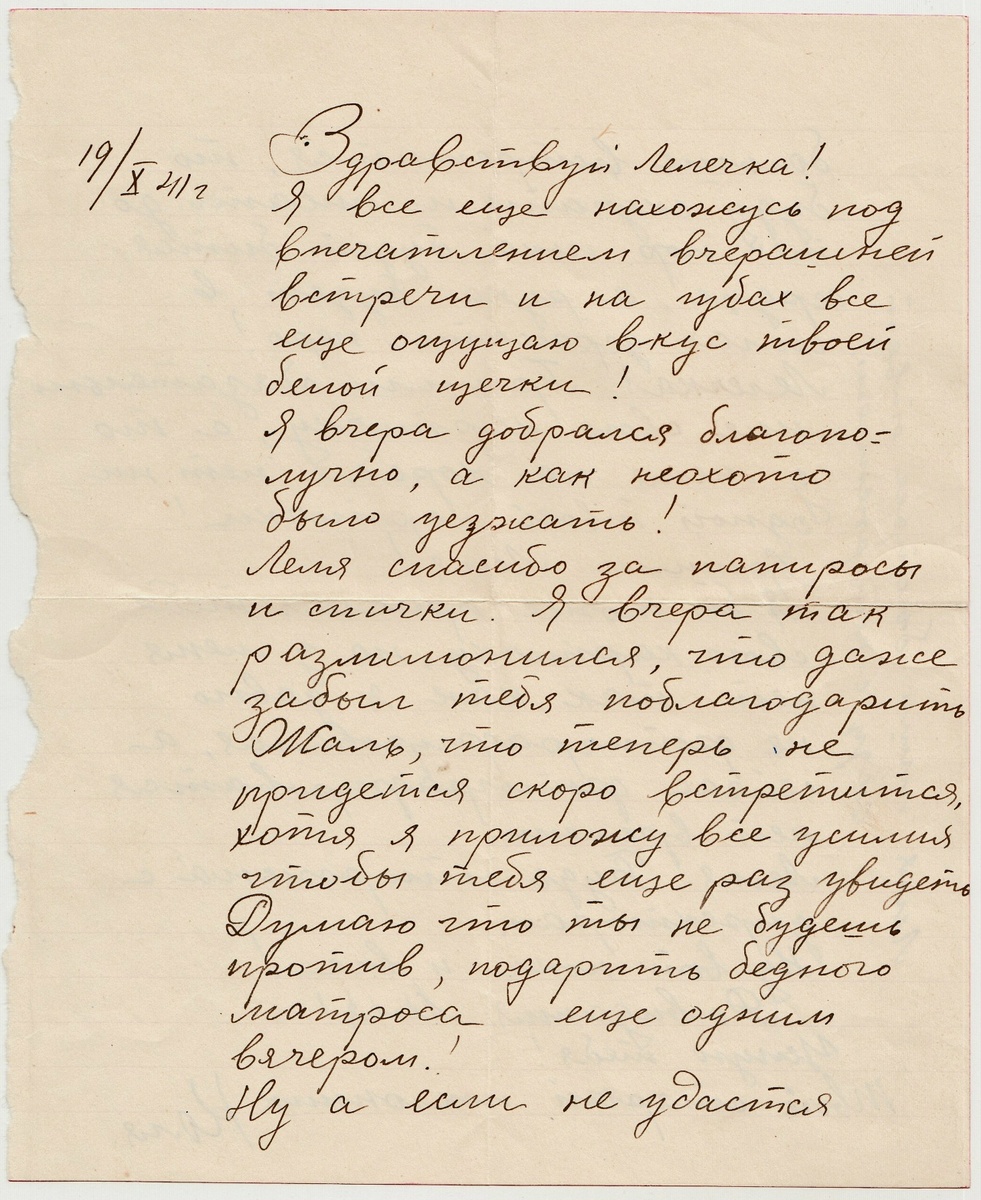 19/X 41 г
Здравствуй Лелечка!
Я все еще нахожусь под
впечатлением вчерашней
встречи и на губах все
еще ощущаю вкус твоей
белой щечки!
Я вчера добрался благопо=
лучно, а как неохото
было уезжать!
Леля спасибо за папиросы
и спички. Я вчера так
разлимонился, что даже
забыл тебя поблагодарить
Жаль, что теперь не
придется скоро встретится,
хотя я приложу все усилия
чтобы тебя еще раз увидеть
Думаю что ты не будешь
против, подарить бедного
матроса еще одним
вячером!
Ну а если не удастся